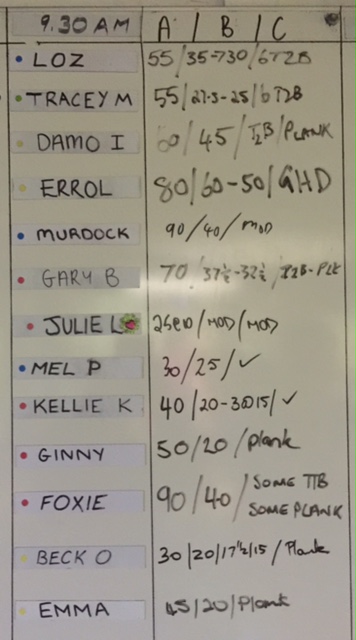 9.30 AM A / B / C
LOZ 55/35-730/6T2B
TRACEY M 55/27.5-25/6T2B
DAMO I 60/45/T2B/PLANK
ERROL 80/60-50/GHD
MURDOCK 90/40/MOD
GARY B 70/37½-32½/T2B-PLK
JULIE L /MOD/MOD
MEL P 30/25/✓
KELLIE K 40/20-30@15/✓
GINNY 50/20/Plank
FOXIE 90/40/SOME TTB
SOME PLANK
BECK O 30/20/17½/15/Plank
EMMA 45/20/Plank